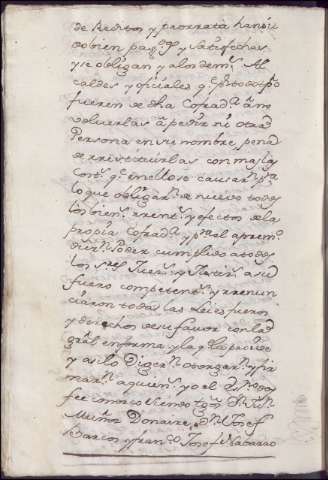 de Reditos y prorrata han si
do bien pag.os y Satisfechas
y se obligan y a los dem.s Al
caldes y oficiales q.e
fueren de dha Cofrad.a a no
volverlas a pedir ni otra
Persona en su nombre pena
de rrestituirlas con mas las
Cost.s q.e en ello se causar.n p.a
lo que obligar.n de nuevo todos
los bien.s rrent.s y efectos de la
propia Cofrad.a y p.a el aprem.o
dier.n Poder cumplido a todos
los S.res Juezes y Justiz.s a su
fuero competent.s y rrenun
ciaron todas las Leies fueros
y derechos de su favor con la
gral en forma y la q.e la proive
y asi lo Digeron otorgar.n y fir
mar.n a quien.s yo el Ess.no doy
fee conozco siendo tg.os D.n
Muñoz Donaire, D.n Josef
Garcia y fran.co Josef Nabarro